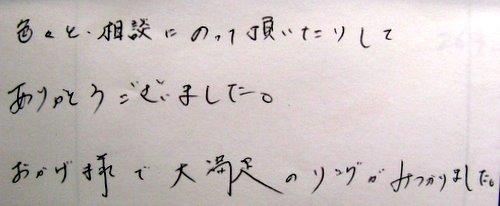 色々と、相談にのって頂いたりして
ありがとうございました。
おかげ様で大満足のリングがみつかりました。